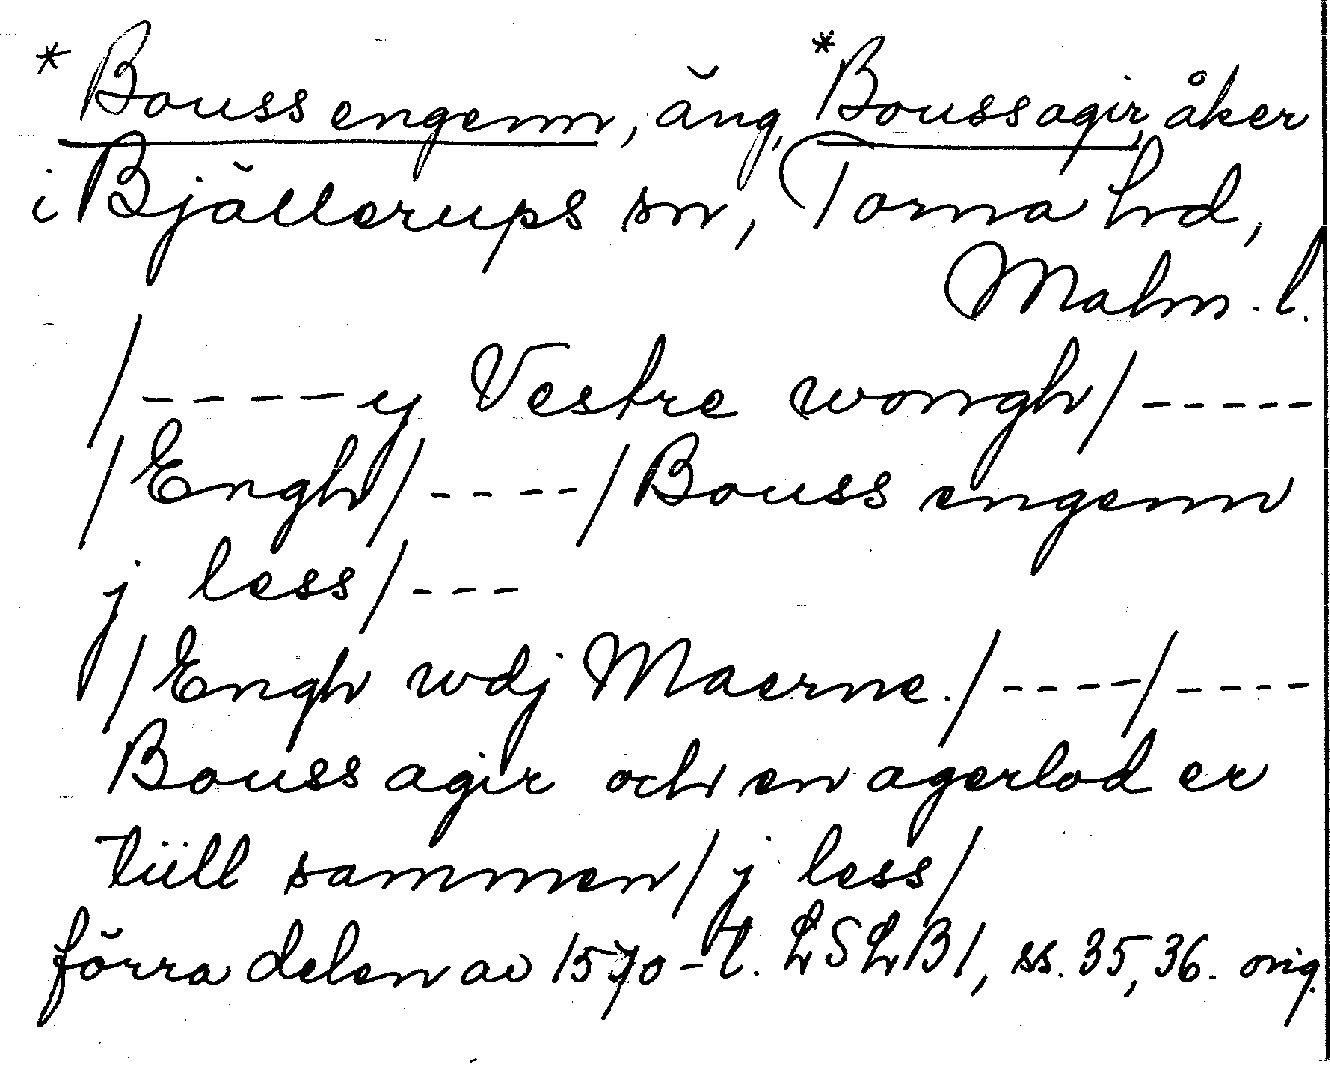 *Bouss engenn, äng, *Boussagir, åker
i Bjällerups sn, Torna hd,
Malm. l.
/-----y Vestre wongh/-----
/Engh/----/Bouss engenn
j less/---
/Engh wdj Maerne./----/----
Bouss agir och en agerlod er
tüll sammen/j less/
förra delen av 1570-t. LSLB1, ss. 35, 36. orig.